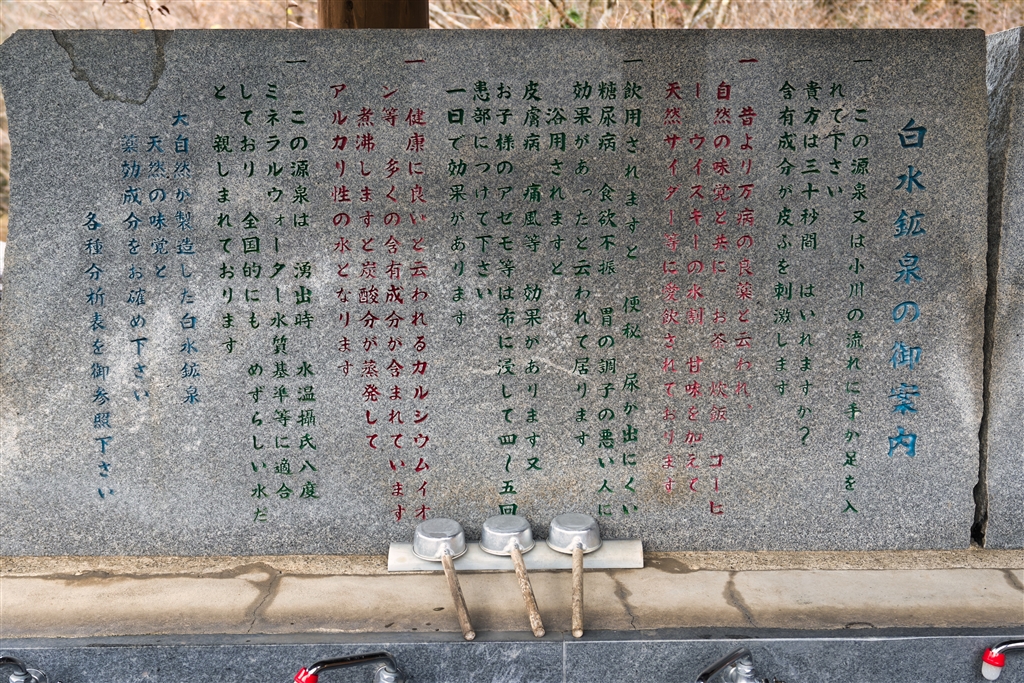 白水鉱泉の御案内
一 この源泉又は小川の流れに手か足を入
れて下さい
貴方は三十秒間 はいれますか?
含有成分が皮ふを刺激します
一 昔より万病の良薬と云われ、
自然の味覚と共に お茶 炊飯 コーヒ
ー ウイスキーの水割 甘味を加えて
天然サイダー等に愛飲されております
一 飲用されますと 便秘 尿が出にくい
糖尿病 食欲不振 胃の調子の悪い人に
効果があったと云われて居ります
浴用されますと
皮膚病 痛風等 効果があります又
お子様のアゼモ等は布に浸して四〜五回
患部につけて下さい
一日で効果があります
一 健康に良いと云われるカルシウムイオ
ン等 多くの含有成分が含まれています
煮沸しますと炭酸分が蒸発して
アルカリ性の水となります
一 この源泉は 湧出時 水温攝氏八度
ミネラルウォーター水質基準等に適合
しており 全国的にも めずらしい水だ
と 親しまれております
大自然が製造した白水鉱泉
天然の味覚と
薬効成分をお確め下さい
各種分析表を御参照下さい